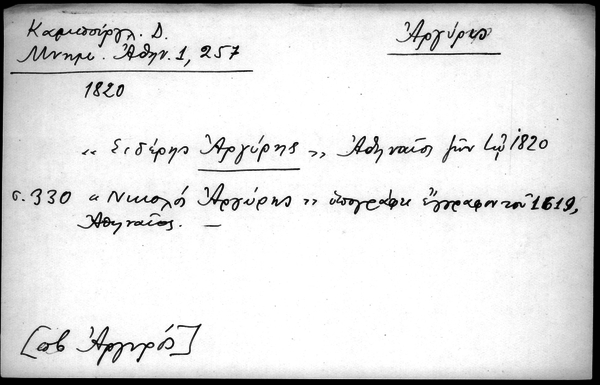 Καμπούρογλ. Δ.
Μνημ. Ἀθην. 1, 257
Ἀργύρης
1820
« Σιδέρης Ἀργύρης » Ἀθηναῖος ζῶν τῷ 1820
σ. 330 « Νικολὸς Ἀργύρης » ὑπογράφει ἔγγραφον τοῦ 1619,
Ἀθηναῖος. —
[πβ Ἀργυρός]